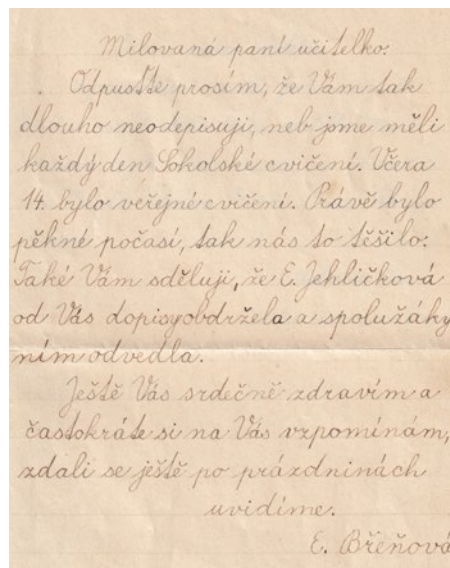 Milovaná paní učitelko:
Odpusťte prosím, že Vám tak
dlouho neodepisuji, neb jsme měli
každý den Sokolské cvičení. Včera
14. bylo veřejné cvičení. Právě bylo
pěkné počasí, tak nás to těšilo.
Také Vám sděluji, že E. Jehličková
od Vás dopisy obdržela a spolužáky
ním odvedla.
Ještě Vás srdečně zdravím a
častokráte si na Vás vzpomínám,
zdali se ještě po prázdninách
uvidíme.
E. Břeňová